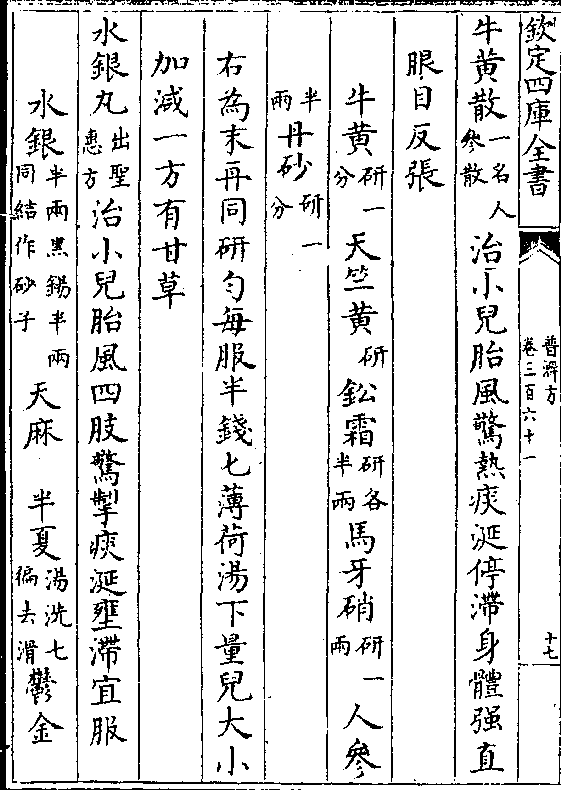 欽定四庫全書
普濟方
卷三百六十一
十七
牛黄散一名人參散治小兒胎風驚熱痰涎停滯身體强直
眼目反張
牛黄研一分天竺黄研鈆霜研各半兩馬牙硝研一兩人參
半兩丹砂研一分
右為末再同研勻每服半錢匕薄荷湯下量兒大小
加減一方有甘草
水銀丸出聖惠方治小兒胎風四肢驚掣痰涎壅滯宜服
水銀半兩黑錫半兩同結作砂子天麻半夏湯洗七徧去滑鬱金